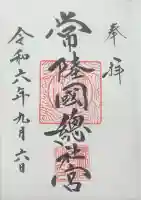 奉拝
常陸國總社宮
令和六年九月六日